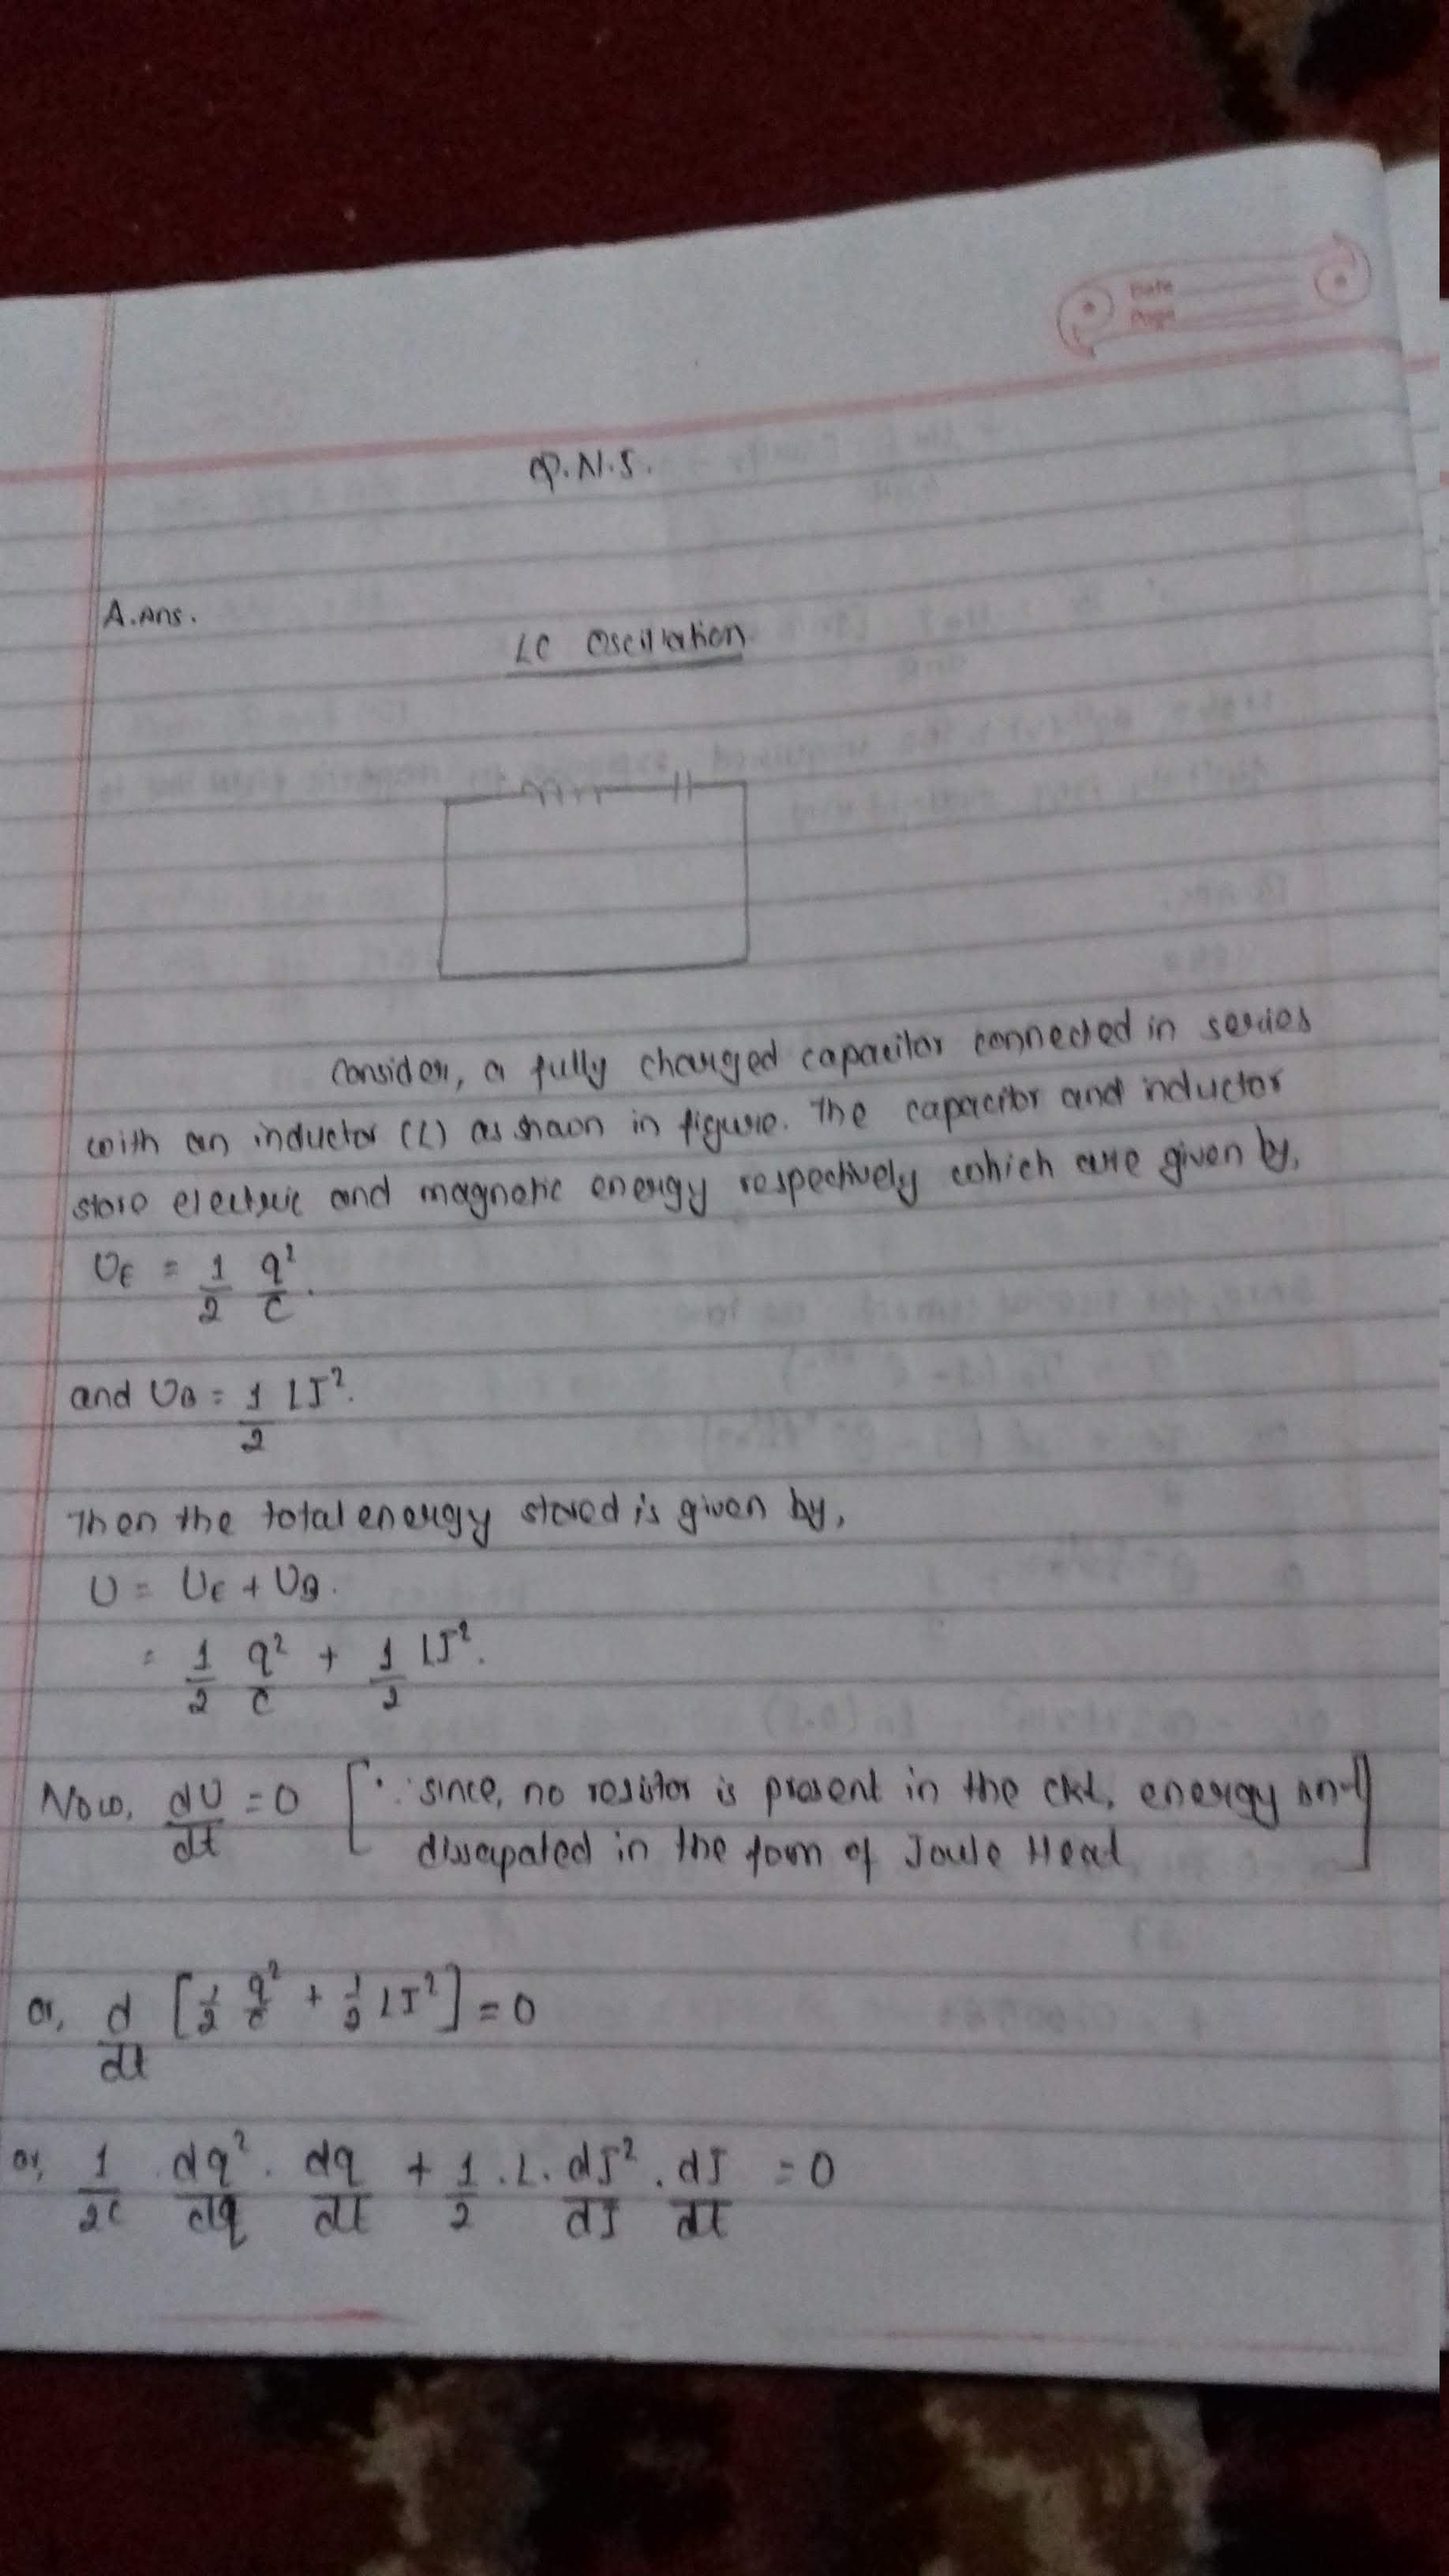 Date
Page
Q.N.5.
A. Ans.
LC Oscillation
Consider, a fully charged capacitor connected in series
with an inductor (L) as shown in figure. The capacitor and inductor
store electric and magnetic energy respectively which are given by,
UE = 1/2 q²/C.
and UB = 1/2 LI².
Then the total energy stored is given by,
U = UE + UB.
= 1/2 q²/C + 1/2 LI².
Now, dU/dt = 0 [∵ since, no resistor is present in the ckt, energy
dissapated in the form of Joule Heat]
or, d/dt [1/2 q²/C + 1/2 LI²] = 0
or, 1/2C . dq²/dq . dq/dt + 1/2 . L . dI²/dI . dI/dt = 0